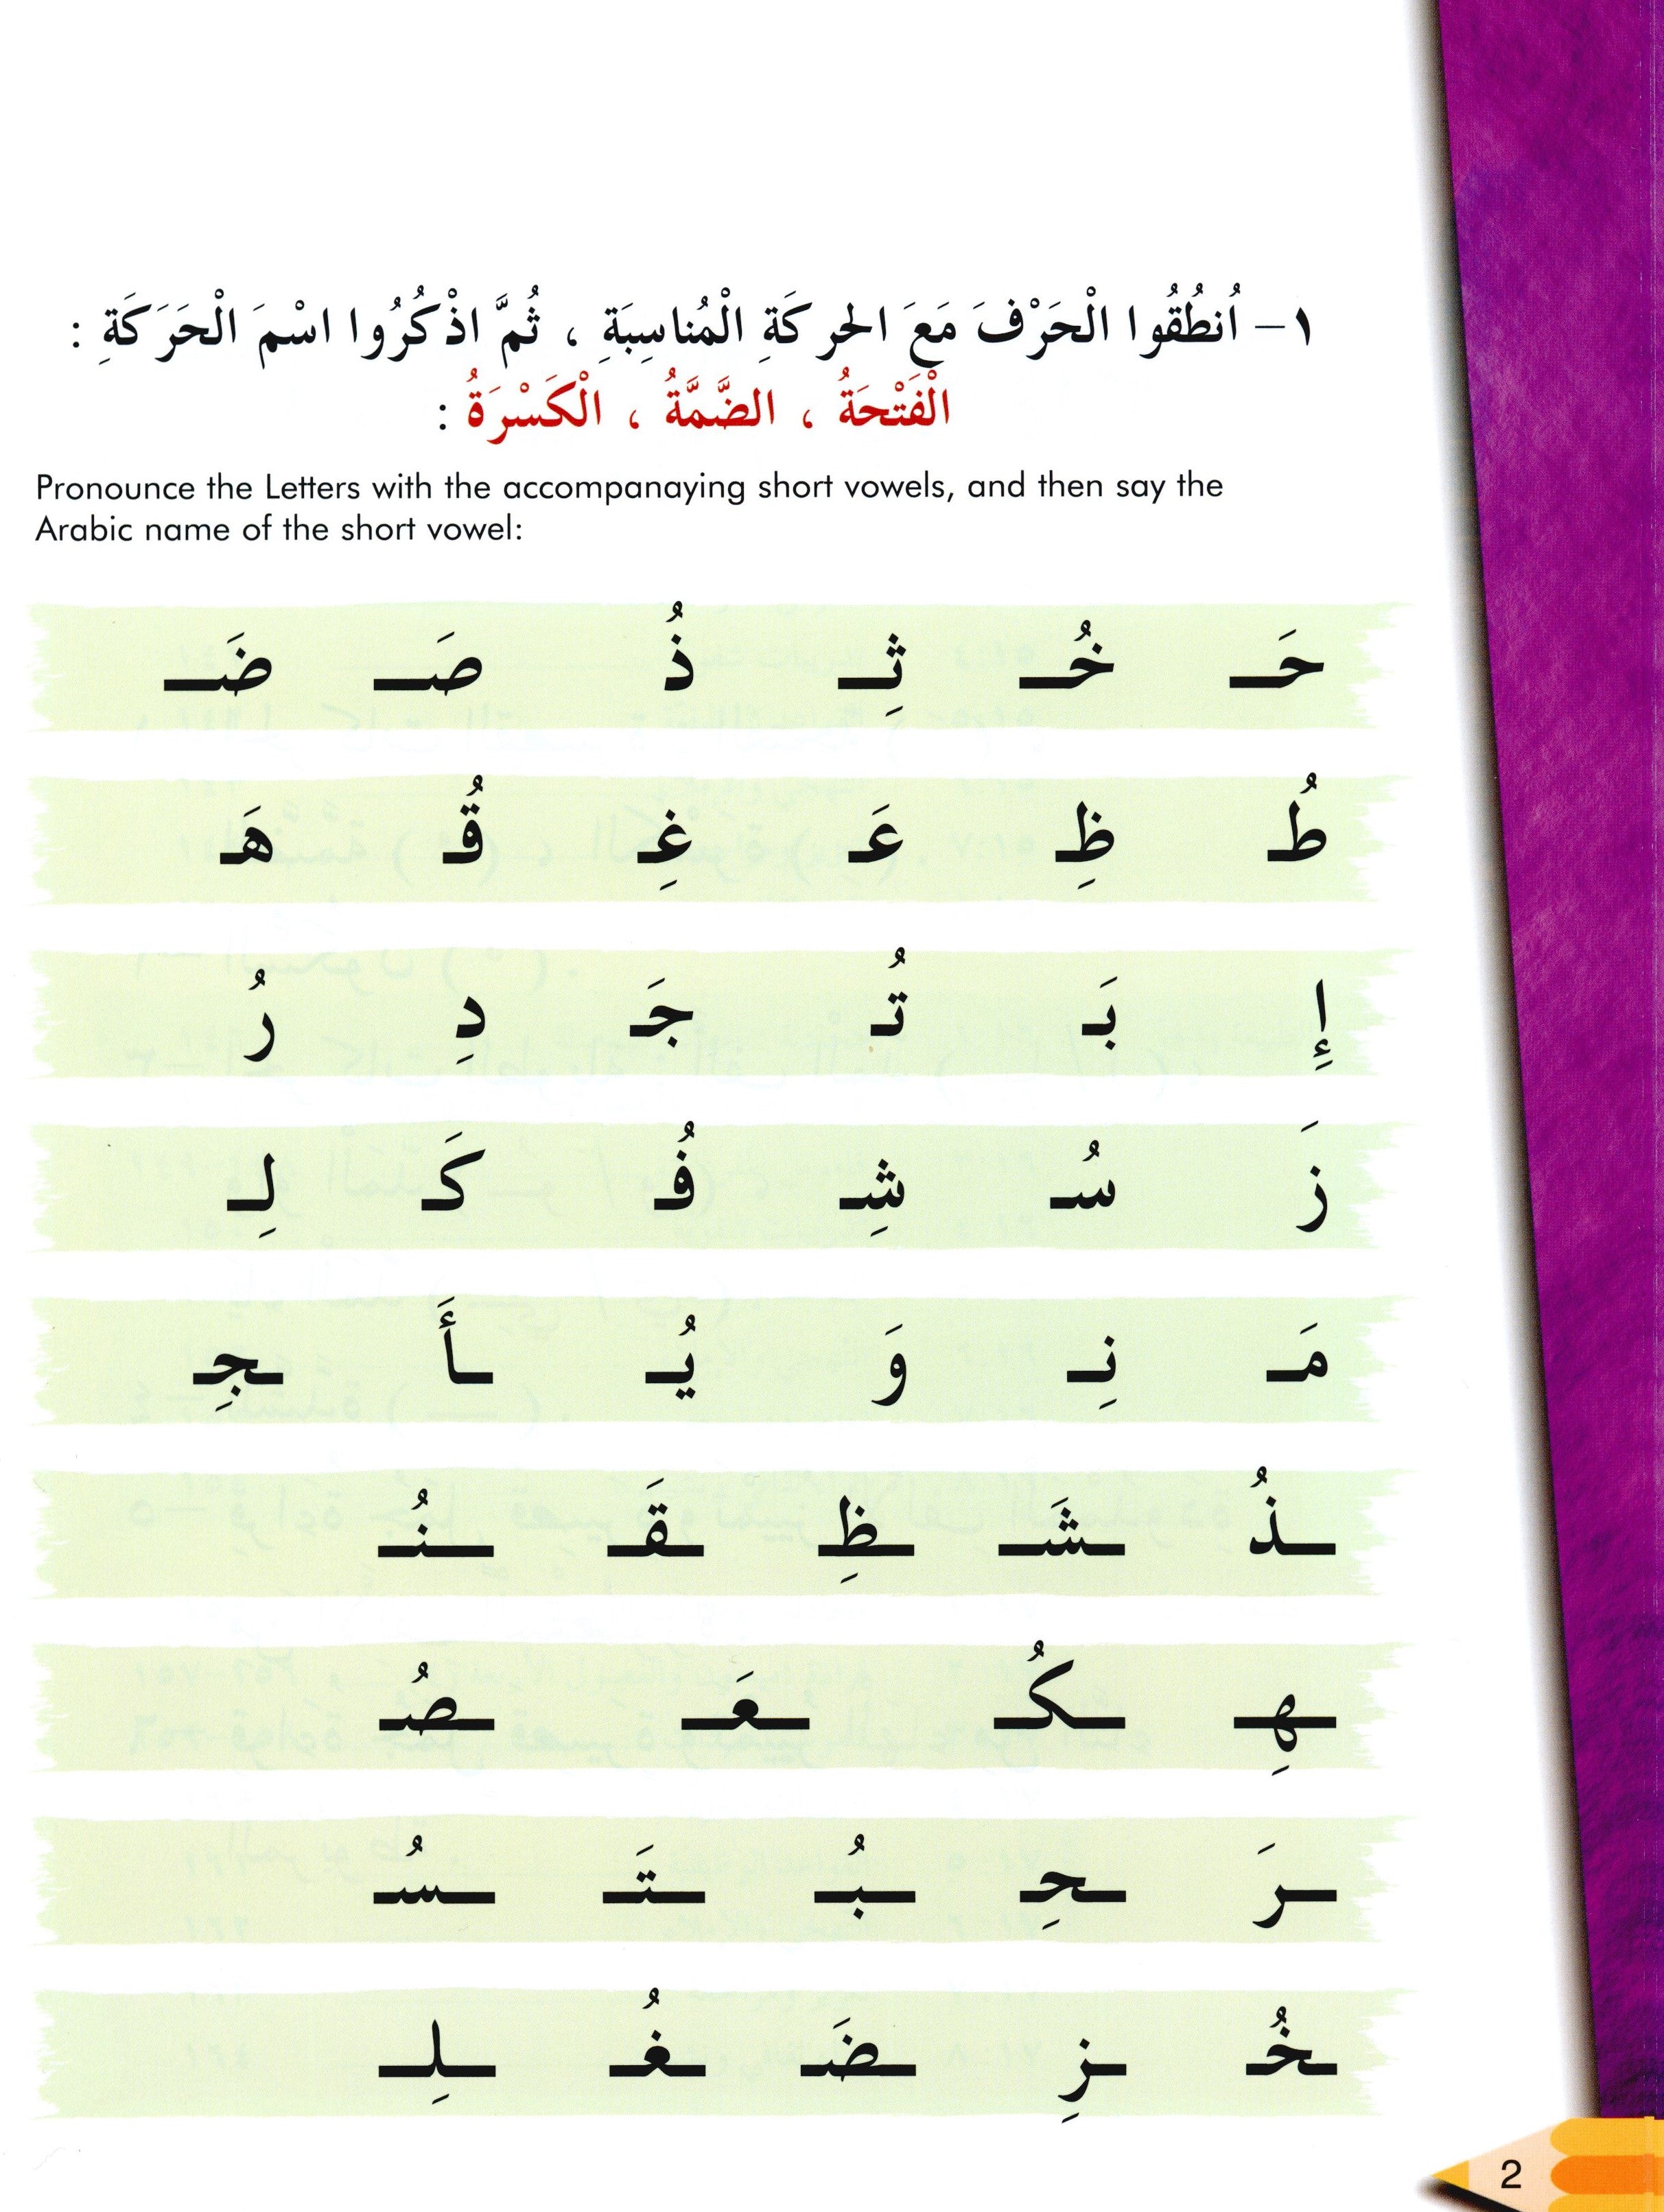 ١- اُنطُقُوا الْحَرْفَ مَعَ الحركَةِ الْمُناسِبَةِ ، ثُمَّ اذْكُرُوا اسْمَ الْحَرَكَةِ :
الْفَتْحَةُ ، الضَّمَّةُ ، الْكَسْرَةُ :
Pronounce the Letters with the accompanaying short vowels, and then say the
Arabic name of the short vowel:
حَـ خُـ ثِـ ذُ صَـ ضَـ
طُـ ظِـ عَـ غِـ قُـ هَـ
إِ بَـ تُـ جَـ دِ رُ
زَ سُـ شِـ فُـ كَـ لِـ
مَـ نِـ وَ يُـ ـأَ ـجِـ
ـذُ ـشَـ ـظِـ ـقَـ ـنُـ
ـهِـ ـكُـ ـعَـ ـصُـ
ـرَ ـحِـ ـبُـ ـتَـ ـسُـ
ـخُـ ـزِ ـضَـ ـغُـ ـلِـ
2